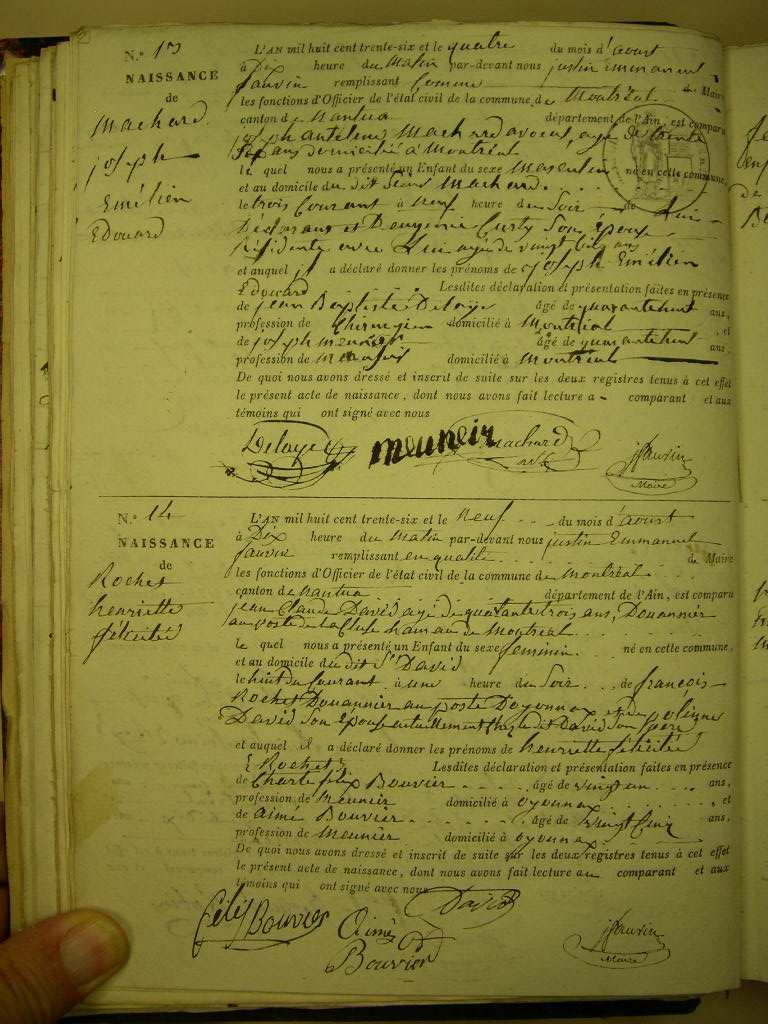 N.° 13
NAISSANCE
de
Machard
joseph
Emélien
Edouard
L'AN mil huit cent trente-six et le quatre du mois d'aoust
à Dix heure du Matin par-devant nous justin Emmanuel
Jauvin remplissant Comme de Maire
les fonctions d'Officier de l'état civil de la commune de Montréal
canton de Nantua département de l'Ain, est comparu
joseph antelme Machard avocat, agé de trente
Six ans domicilié à Montréal
le quel nous a présenté un Enfant du sexe Masculin né en cette commune,
et au domicile du dit Sieur Machard.
le trois Courant à neuf heure du Soir de Lui
Déclarant et D'eugénie Curty Son Epouse
résidente avec Lui agée de vingt ans
et auquel il a déclaré donner les prénoms de joseph Emélien
Edouard Lesdites déclaration et présentation faites en présence
de jean Baptiste Delaye âgé de quarantehuit ans,
profession de Chirurgien domicilié à Montréal et
de joseph meunier âgé de quarantehuit ans,
profession de domicilié à Montréal
De quoi nous avons dressé et inscrit de suite sur les deux registres tenus à cet effet
le présent acte de naissance, dont nous avons fait lecture au comparant et aux
témoins qui ont signé avec nous
Delaye meuneir Machard jJauvin
Maire
N.° 14
NAISSANCE
de
Rochet
henriette
félicité
L'AN mil huit cent trente-six et le Neuf du mois d'aoust
à Dix heure du Matin par-devant nous justin Emmanuel
Jauvin remplissant en qualité de Maire
les fonctions d'Officier de l'état civil de la commune de Montréal
canton de Nantua département de l'Ain, est comparu
jean Claude David agé de quarante trois ans, Douannier
au poste de la Cluse hameau de Montréal
le quel nous a présenté un Enfant du sexe feminin né en cette commune,
et au domicile du dit Sr David
le huit du Courant à une heure du Soir de françois
Rochet Douannier au poste Doyonnax et de
David Son Epouse actuellement chez le dit David Son père
et auquel il a déclaré donner les prénoms de henriette félicité
(Rochet) Lesdites déclaration et présentation faites en présence
de Charle félix Bouvier âgé de vingt un ans,
profession de Meunier domicilié à oyonnax et
de aimé Bouvier âgé de vingt Cinq ans,
profession de Meunier domicilié à oyonnax
De quoi nous avons dressé et inscrit de suite sur les deux registres tenus à cet effet
le présent acte de naissance, dont nous avons fait lecture au comparant et aux
témoins qui ont signé avec nous
David
félix Bouvier Aimé jJauvin
Bouvier Maire